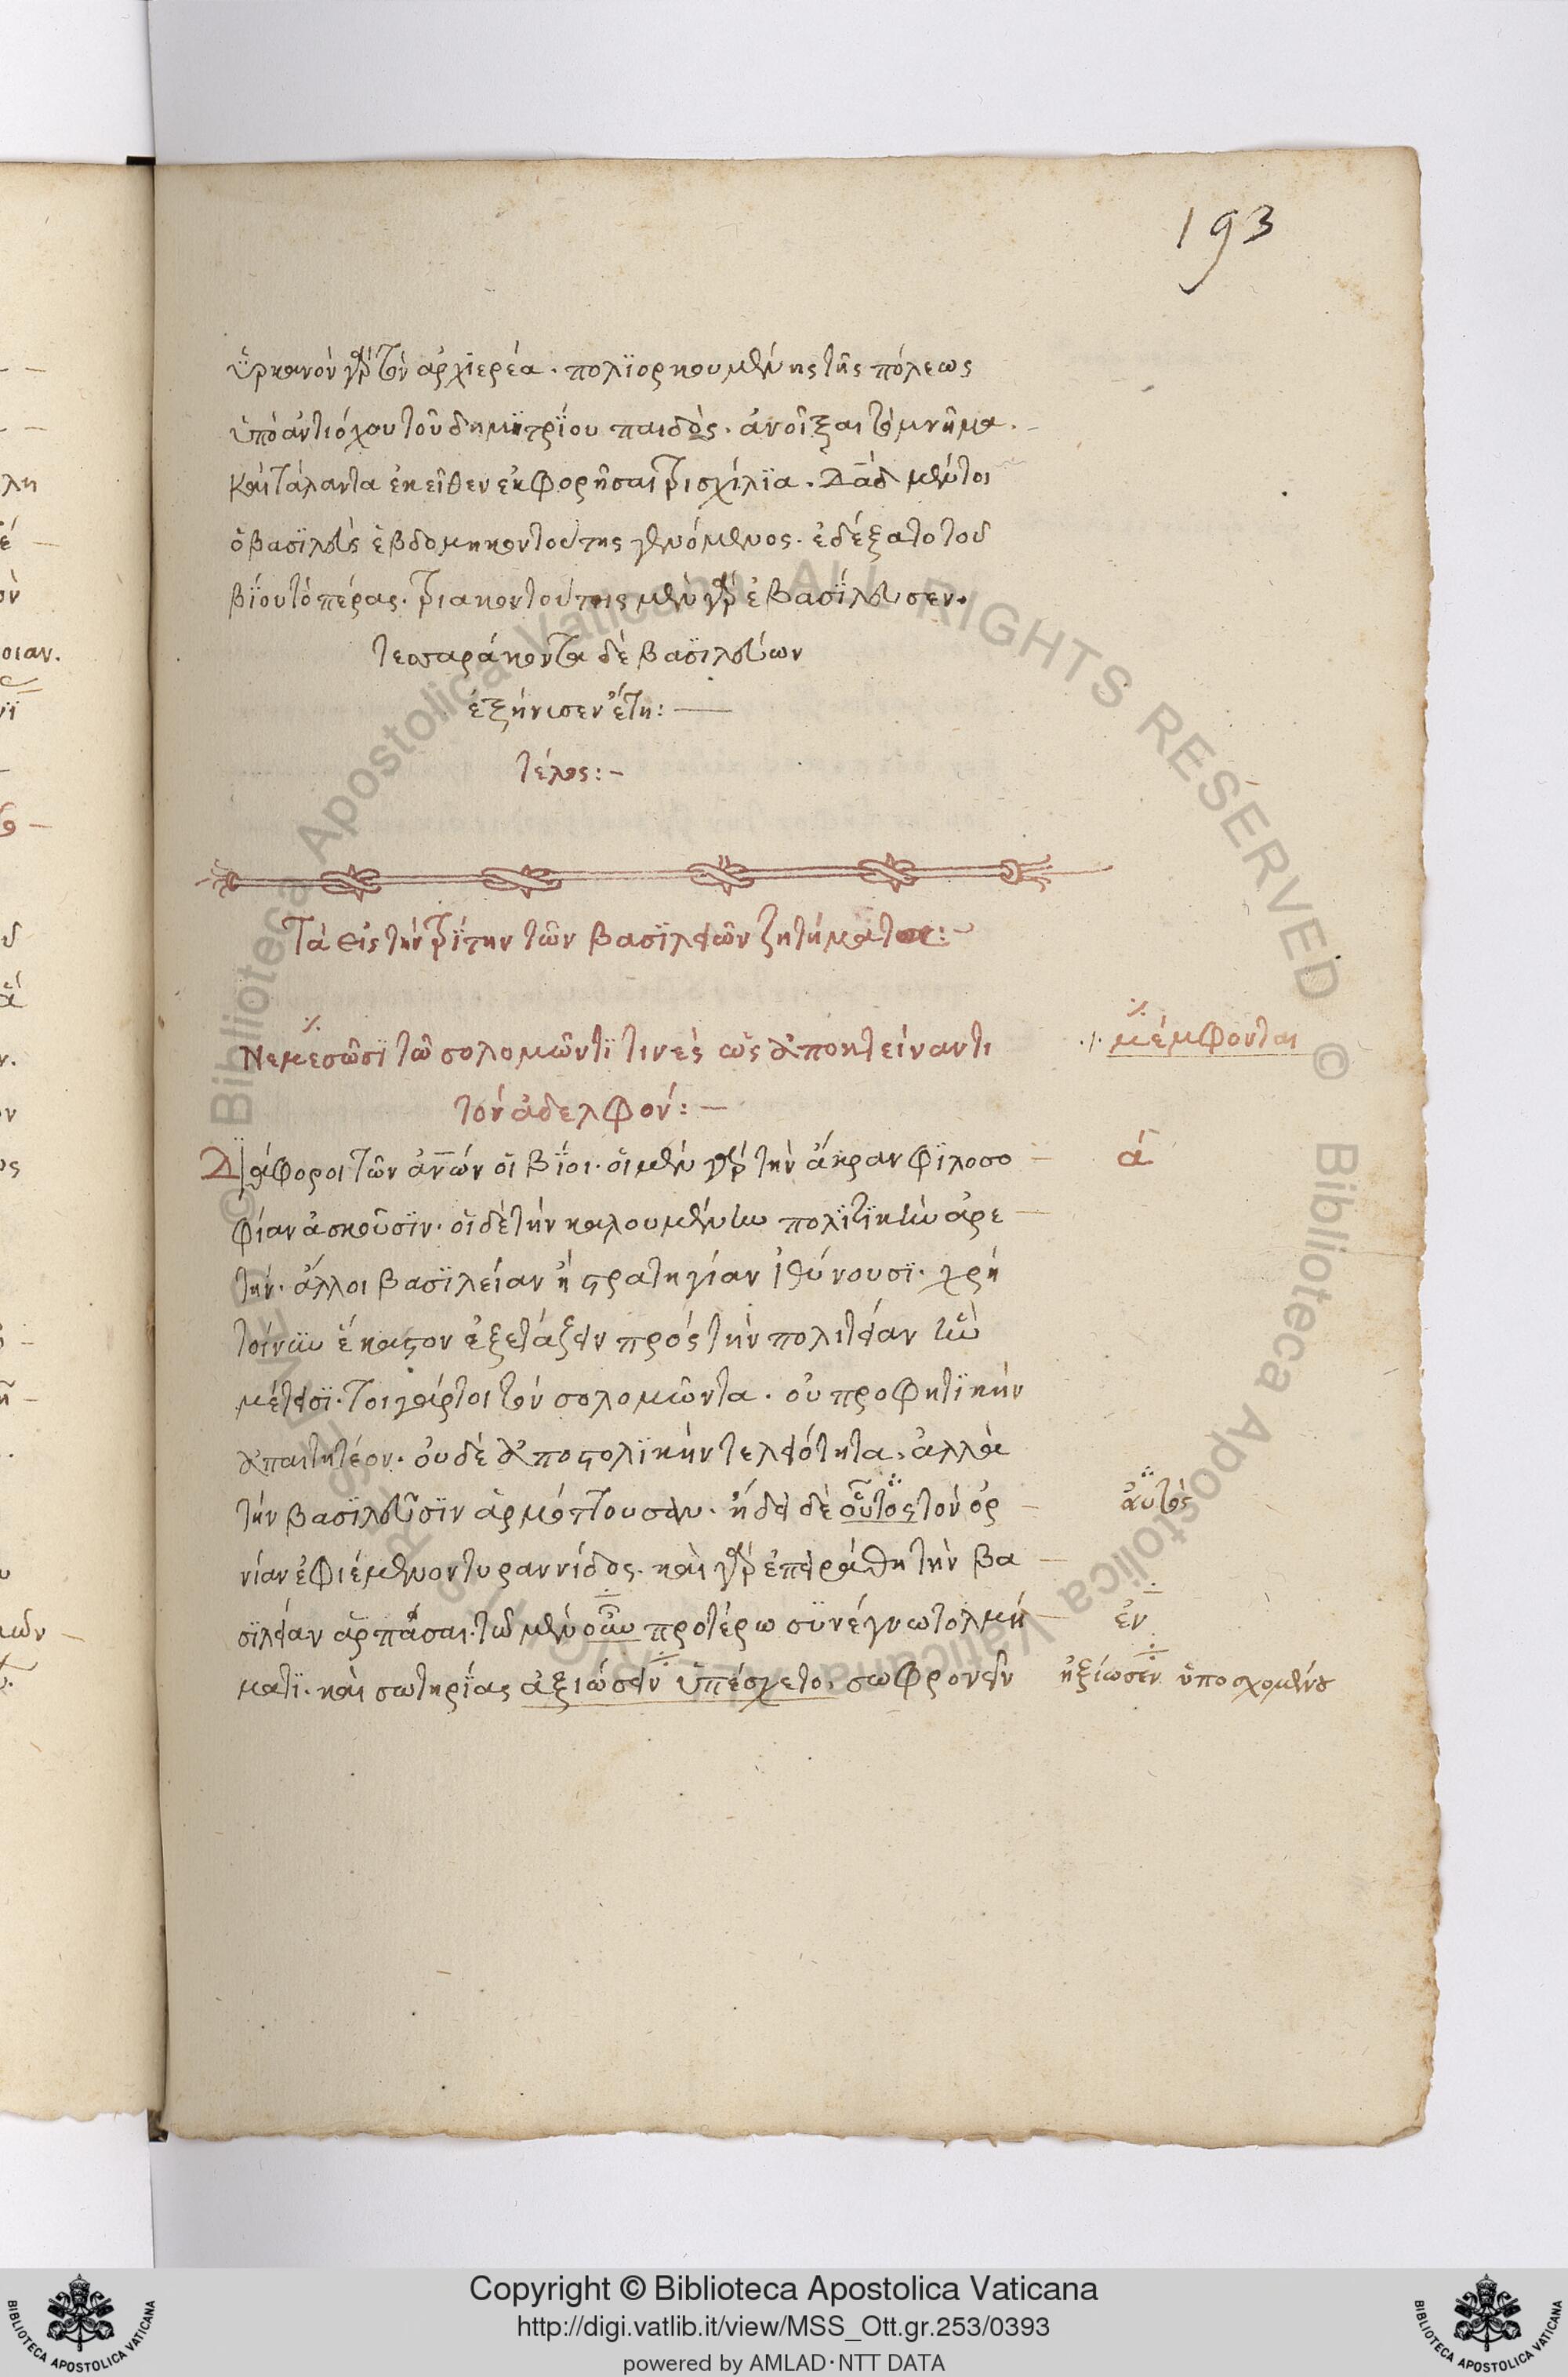 193
ὑρκανὸν γὰρ τὸν ἀρχϊερέα· πολϊορκουμένης τῆς πόλεως
ὑπὸ ἀντιόχου τοῦ δημητρΐου παιδὸς· ἀνοῖξαι τὸ μνῆμα·
καὶ τάλαντα ἐκεῖθεν ἐκφορῆσαι τρισχίλϊα· δᾱδ μέντοι
ὁ βασϊλεὺς ἑβδομηκοντούτης γενόμενος· ἐδέξατο τοῦ
βΐου τὸ πέρας· τριακοντούτης μὲν γὰρ ἐβασΐλευσεν·
τεσσαράκοντα δὲ βασϊλεύων
ἐξήνισεν ἔτη:—
τέλος:–
Τὰ εἰς τὴν τρΐτην τῶν βασϊλειῶν ζητήματα:
Νεμεσῶσϊ τῶ σολομῶντϊ τινὲς ὡς ἀποκτείναντι
τὸν ἀδελφόν:—
μέμφονται
Διάφοροι τῶν ἀν̅ων οἱ βΐοι· οἱ μὲν γὰρ τὴν ἄκραν φϊλοσο
ᾱ
φίαν ἀσκοῦσϊν· οἱ δὲ τὴν καλουμένην πολϊτϊκὴν ἀρε
τήν· ἄλλοι βασϊλείαν ἢ στρατηγίαν ἰθύνουσϊ· χρὴ
τοίνυν ἕκαστον ἐξετάζειν πρὸς τὴν πολιτείαν ἣν
μέτεισϊ· τοιγάρτοι τὸν σολομῶντα· οὐ προφητϊκὴν
ἀπαιτητέον· οὐδὲ ἀποστολϊκὴν τελειότητα, ἀλλὰ
τὴν βασϊλεῦσϊν ἁρμόττουσαν· ἤδει δὲ οὗτος τὸν ὀρ
αὐτὸς
νίαν ἐφιέμενον τυραννίδος· καὶ γὰρ ἐπειράθη τὴν βα
σϊλείαν ἁρπᾶσαι· τῶ μὲν οὖν προτέρω σϋνέγνω τολμή
ἐν
ματϊ· καὶ σωτηρΐας ἀξιώσειν ὑπέσχετο, σωφρονεῖν
ἠξίωσεν ὑποσχομένου
Copyright © Biblioteca Apostolica Vaticana
http://digi.vatlib.it/view/MSS_Ott.gr.253/0393
powered by AMLAD·NTT DATA
BIBLIOTECA APOSTOLICA VATICANA
BIBLIOTECA APOSTOLICA VATICANA
© Biblioteca Apostolica Vaticana ALL RIGHTS RESERVED